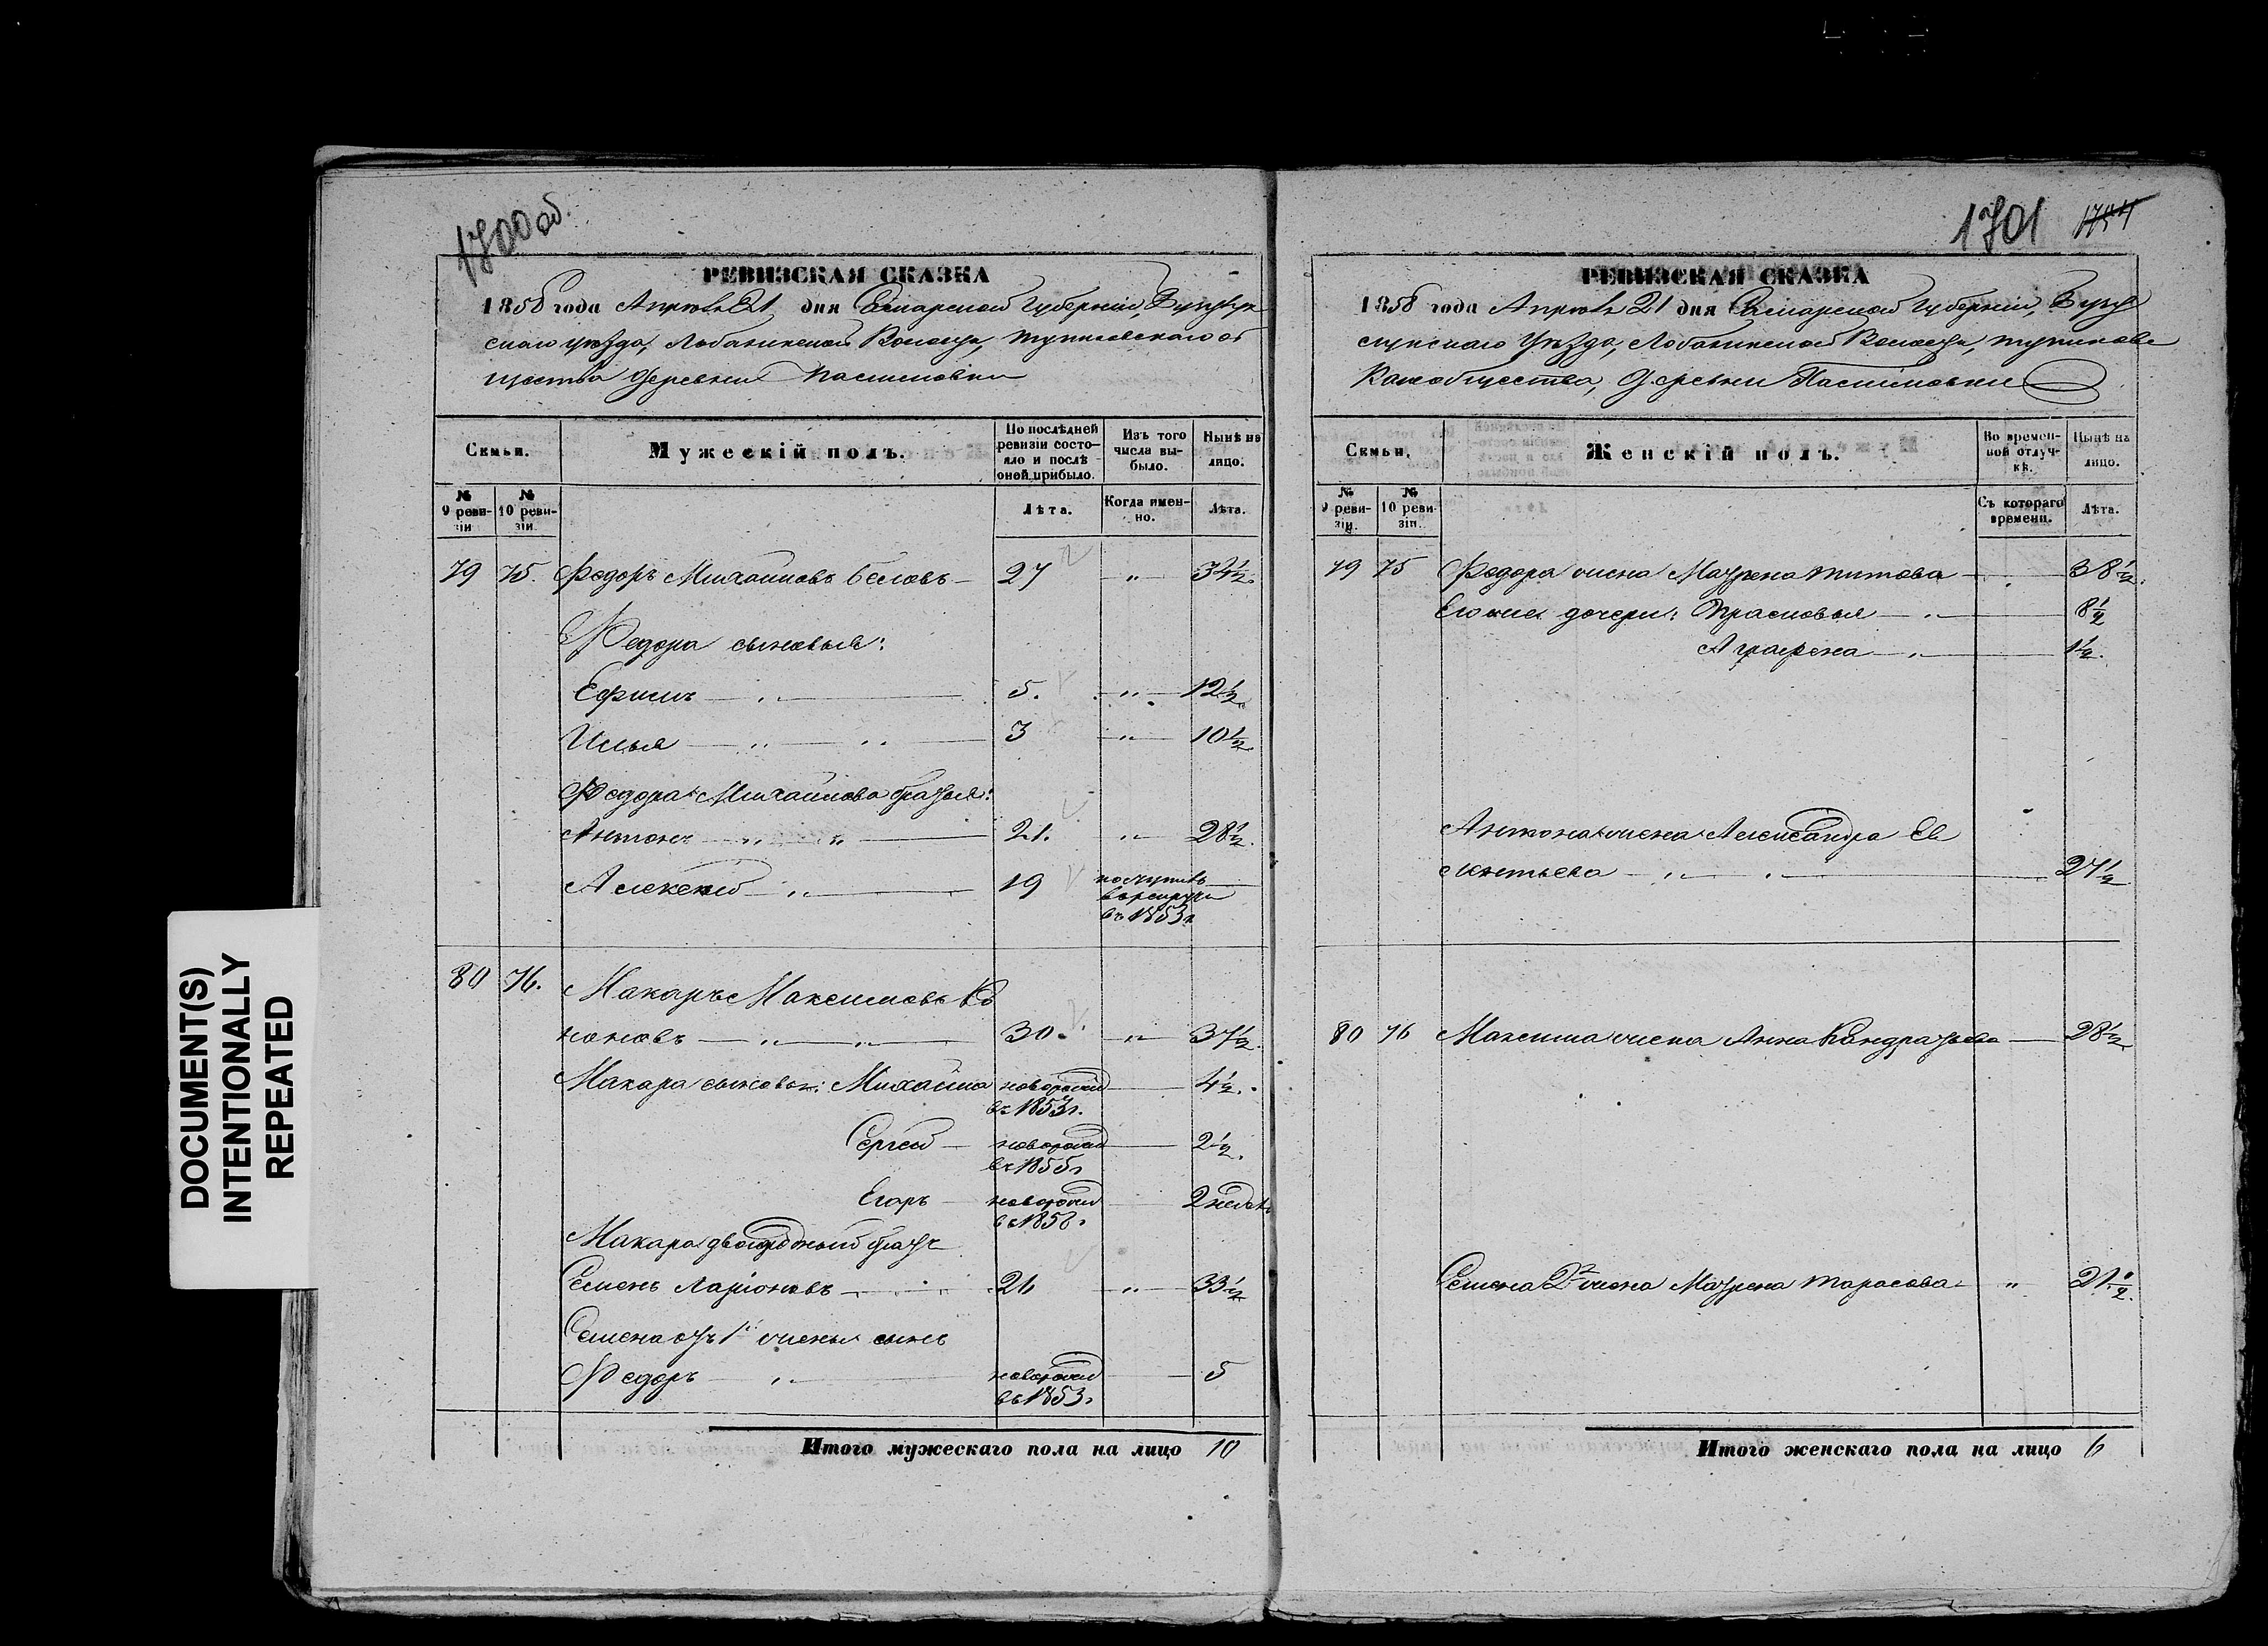 DOCUMENT(S)
INTENTIONALLY
REPEATED
1700 об.
РЕВИЗСКАЯ СКАЗКА
1858 года Апреля 21 дня Самарской Губернии, Бузулук
скаго уѣзда, Лобазинской Волости, об
щества деревни
Семьи.
Мужескій полъ.
По послѣдней ревизіи состо-яло и послѣ оной прибыло.
Изъ того числа вы-было.
Нынѣ на лицо.
№ 9 реви-зіи
№ 10 реви-зіи.
Лѣта.
Когда имен-но.
Лѣта.
79 75. Федоръ Михайловъ Беловъ 27 " 34½.
Федора сыновья:
Ефимъ " 5. " 12½
Илья " " 3 " 10½
Федора Михайлова братья:
Антонъ " " 21. " 28½
Алексей " 19 поступилъ
в рекруты
въ 1853 г.
80 76. Макаръ Максимовъ Ко
ноновъ " " 30. " 37½
Макара сыновья: Михайла новорожд 4½.
въ 1853 г.
Сергей новорожд 2½.
въ 1855 г
Егоръ новорожд 2 недел
въ 1858 г.
Макара двоюродный братъ
Семенъ Ларіоновъ 26 " 33½
Семена отъ 1й жены сынъ
Федоръ " новорожд 5
въ 1853 г
Итого мужескаго пола на лицо 10
1701
РЕВИЗСКАЯ СКАЗКА
1858 года Апреля 21 дня Самарской Губерніи, Бузу
лукскаго Уѣзда, Лобазинской Волости,
Кого общества, Деревни
Семьи.
Женскій полъ.
Во времен-ной отлуч-кѣ.
Нынѣ на лицо.
№ 9 реви-зіи.
№ 10 реви-зіи.
Съ котораго времени.
Лѣта.
79 75 Федора жена Матрена Титова 38½.
Его же дочери: Прасковья " 8½
Аграфена " 1½.
Антона жена Александра Ев
лантьева " " 27½
80 76 Максима жена Анна Кондратьева 28½
Семена 2я жена Матрена Тарасова " 21½.
Итого женскаго пола на лицо 6